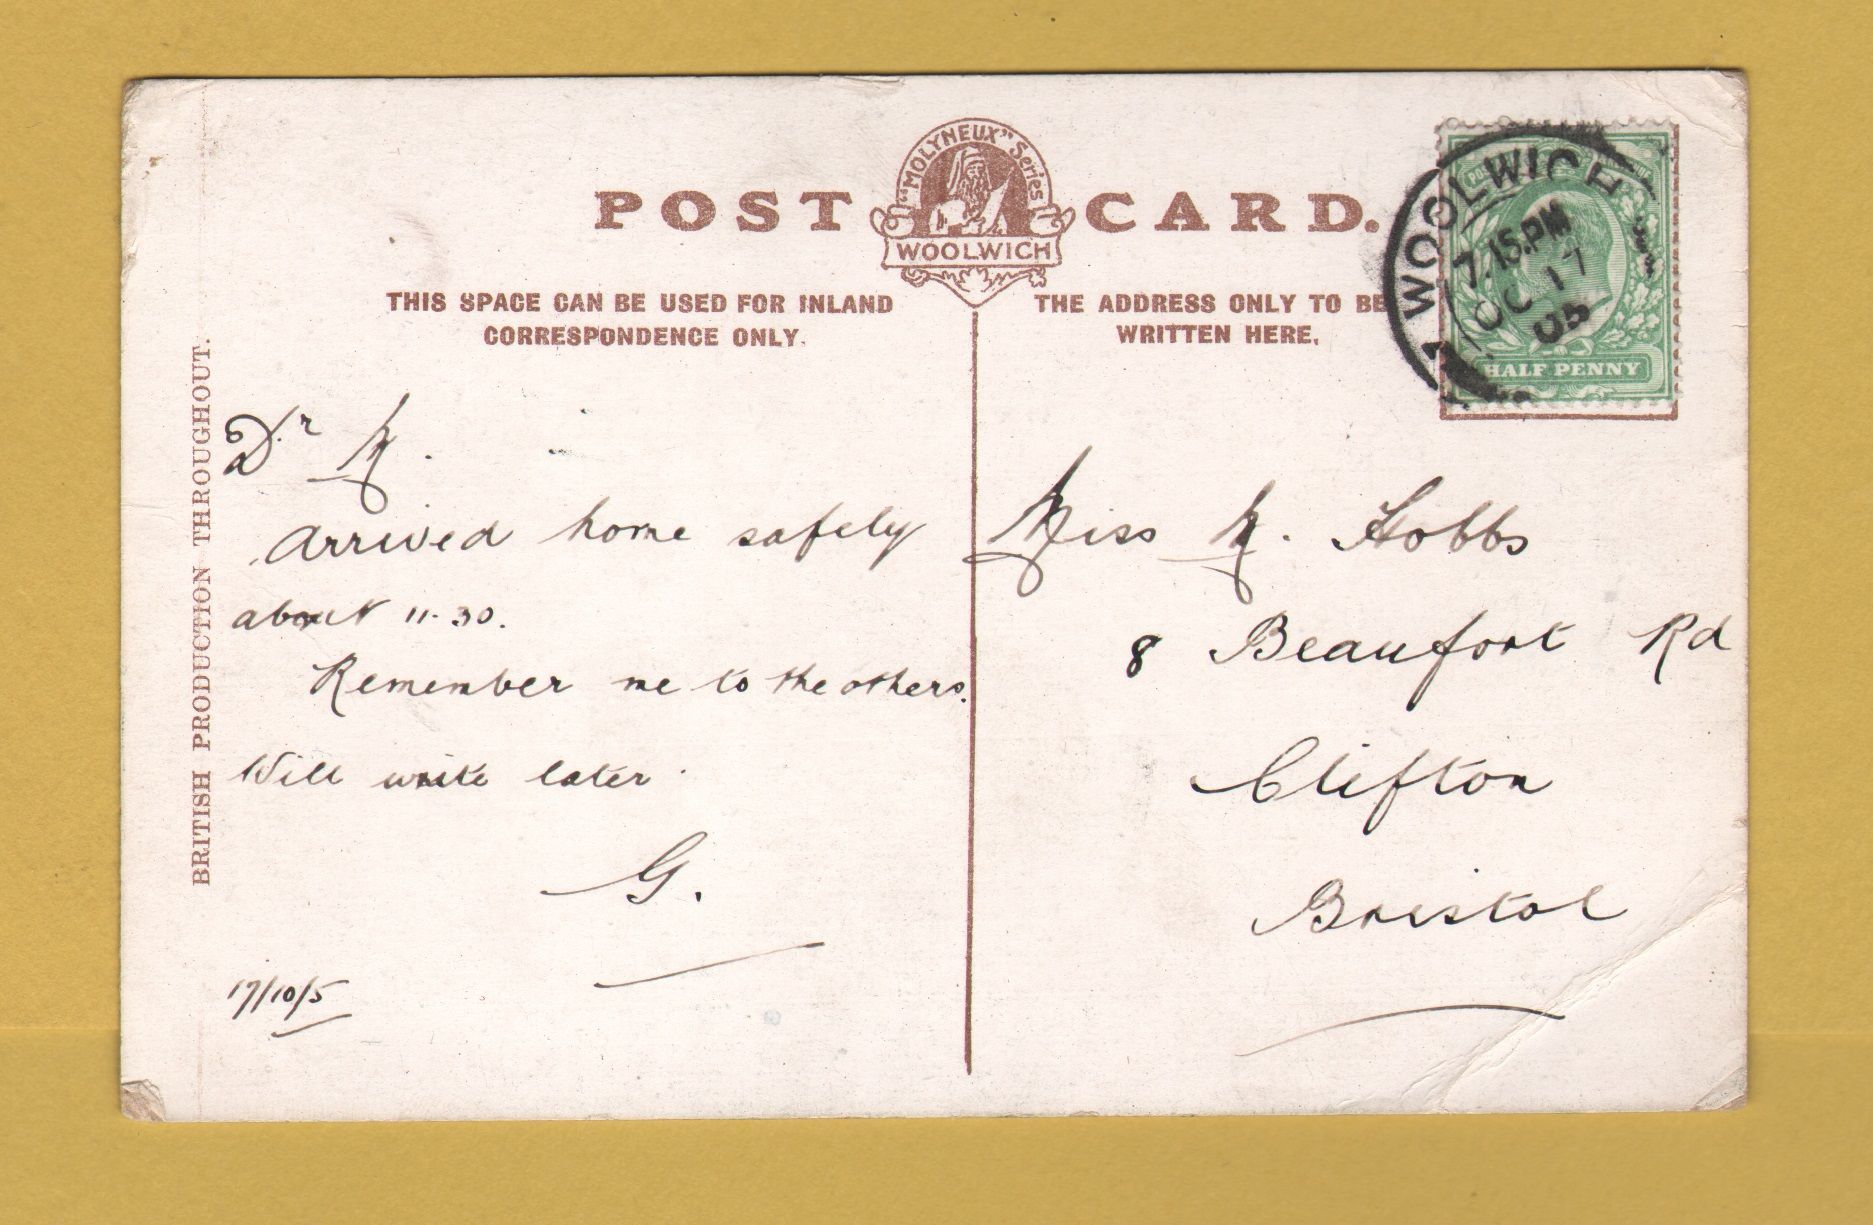 POST CARD.
"MOLYNEUX" Series
WOOLWICH
THIS SPACE CAN BE USED FOR INLAND
CORRESPONDENCE ONLY.
THE ADDRESS ONLY TO BE
WRITTEN HERE.
WOOLWICH
7.15.PM
OC 17
05
HALF PENNY
BRITISH PRODUCTION THROUGHOUT.
Dr M.
Arrived home safely
about 11.30.
Remember me to the others.
Will write later.
G.
17/10/5
Miss M. Hobbs
8 Beaufort Rd
Clifton
Bristol